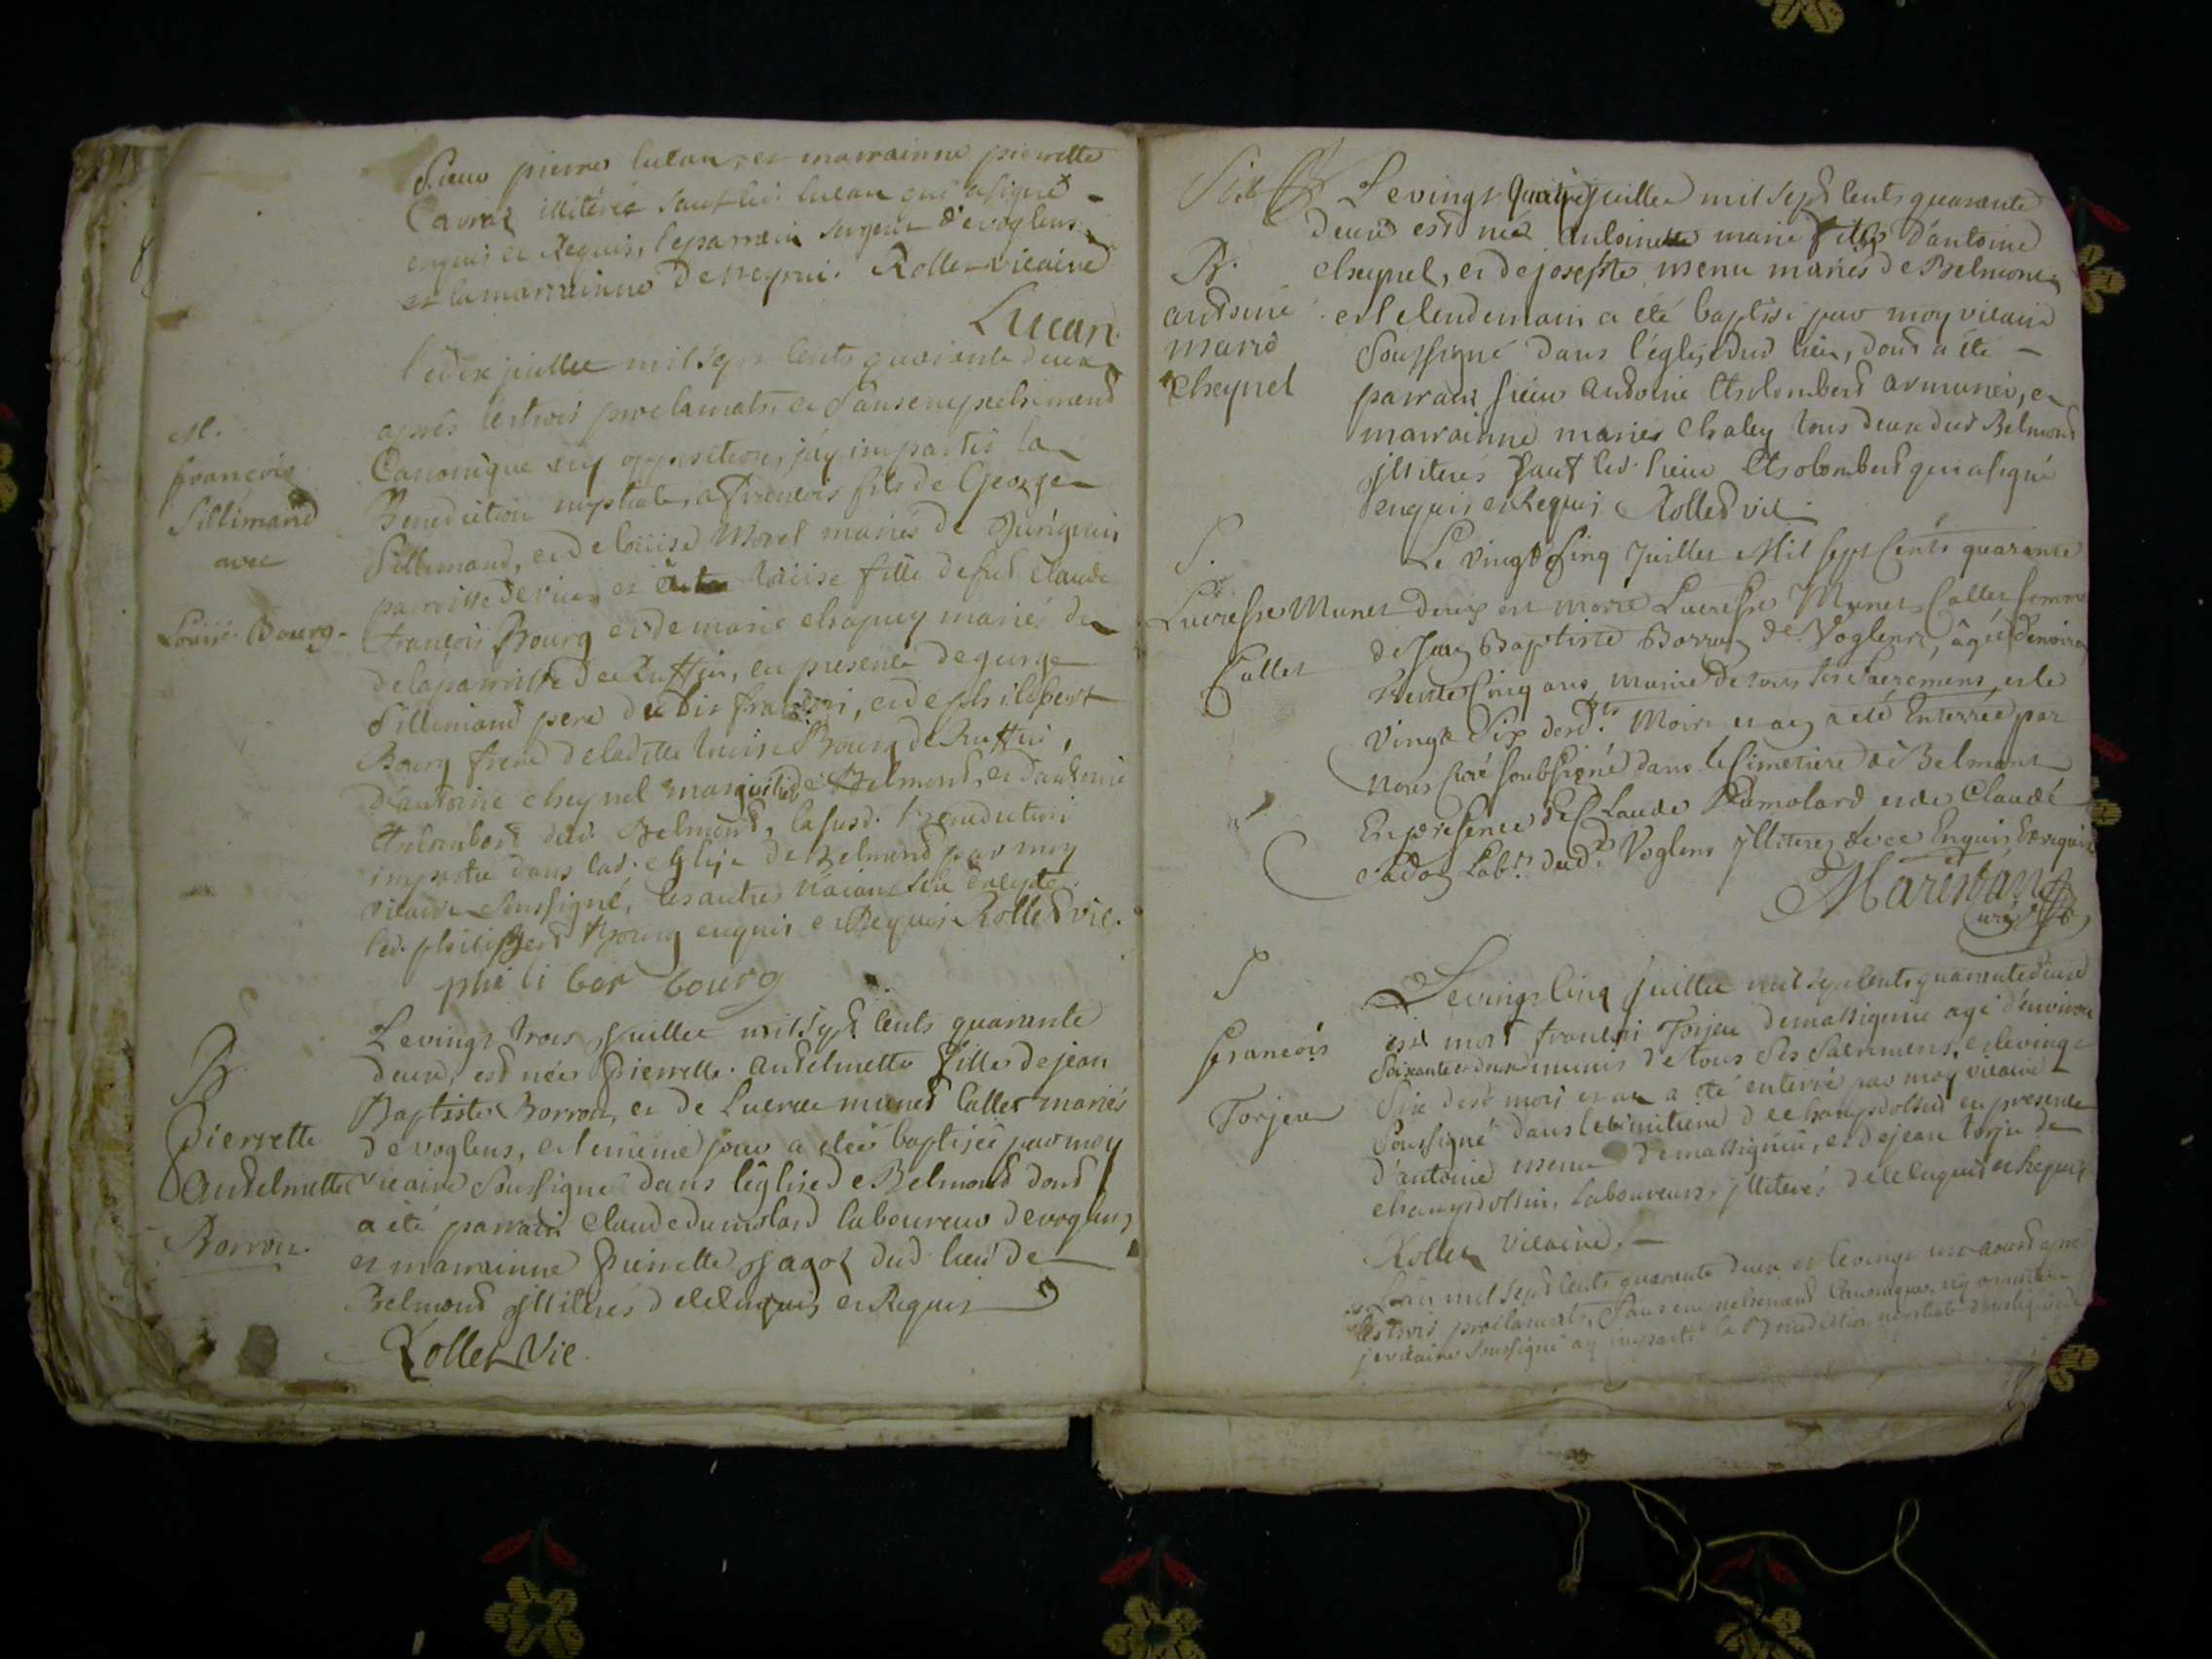 Sieur pierre lucan, et marrainne pierrette
Cavraz illiterée sauf led. lucan qui a signé
enquis et Requis, le parrain de voglens
et la marrainne de peyrui. Rollet vicaire
Lucan.
M.
françois
Sillimand
avec
Louise Bourg.
le dix juillet mil sept cents quarante deux
après les trois proclamats. et sans empechement
Canonique ny opposition, j'ay imparti la
Benediction nuptiale, a francois fils de George
Sillimand, et de loüise Morel mariés de
parroisse de vieu, et a loüise fille de fud Claude
francois Bourg et de marie chapuy mariés de
de la parroisse de Ruffieu, en presence de george
Sillimand pere dudit francois, et de philibert
Bourg frere de laditte loüise Bourg de Ruffieu,
d'antoine cheynel de Belmond, et d'antoine
dud. Belmond, la susd. Benediction
impartie dans lad. eglise de Belmond par moy
vicaire soussigné, les autres n'aiant scu excepté
led. philibert Bourg enquis et Requis Rollet vic.
phi li ber bourg
B.
Pierrette
Andelmette
Borron.
Le vingt trois Juillet mil sept cents quarante
deux, est née Pierrette Andelmette fille de jean
Baptiste Borron, et de Lucrece munet Callet mariés
de voglens, et le même jour a etée baptisée par moy
vicaire soussigné dans l'église de Belmond dont
a été parrain Claude dumolard laboureur de voglens
et marrainne Pierrette Jagot dud lieu de
Belmond Illiterés de ce enquis et Requis
Rollet Vic.
B.
antoine
marie
Cheynel
Le vingt quatre juillet mil sept cents quarante
deux est né antoine marie fils d'antoine
cheynel, et de josephte menu mariés de Belmond
et le lendemain a été baptisé par moy vicaire
Soussigné dans l'église dud lieu, dont a été
parrain sieur antoine armurier, et
marrainne marie Chaley tous deux dud Belmond
illiterés sauf led. sieur qui a signé
enquis et Requis Rollet vic
S.
Lucresse Munet
Callet
Le vingt Cinq Juillet Mil sept Cents quarante
deux est morte Lucresse Munet Callet femme
de Jean Baptiste Borron de Voglens, âgée d'environ
trente Cinq ans, munie de tous ses Sacremens, et le
vingt Six desd.ts Mois et an a été Enterrée par
Nous Curé soubsigné dans le Cimetiere de Belmont
En presence de Claude Dumolard et de Claude
Lab.rs dud.t Voglens illiteres de ce Enquis et requis
Marestan
curé
S
françois
Torjeu
Le vingt cinq Juillet mil sept cents quarante deux
est mort francois Torjeu de massignieu agé d'environ
Soixante et deux munis de tous ses Sacremens, et le vingt
Six desd mois et an a été enterré par moy vicaire
Soussigné dans le cimitiere de champdossin en presence
d'antoine menu de massignieu, et de jean torju de
champdossin, laboureurs, illiterés de ce enquis et Requis
Rollet vicaire.
L'an mil sept cents quarante deux et le vingt un aoust après
les trois proclamats, Sans empechement Canonique, ny opposition
je vicaire Soussigné ay imparti la Benediction nuptiale dans l'eglise de